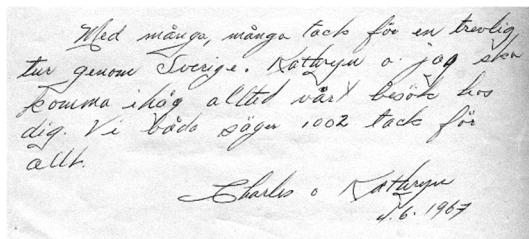 Med många, många tack för en trevlig
tur genom Sverige. Kathryn o. jag ska
komma ihåg alltid vårt besök hos
dig. Vi båda säger 1002 tack för
allt.
Charles o Kathryn
4.6.1967